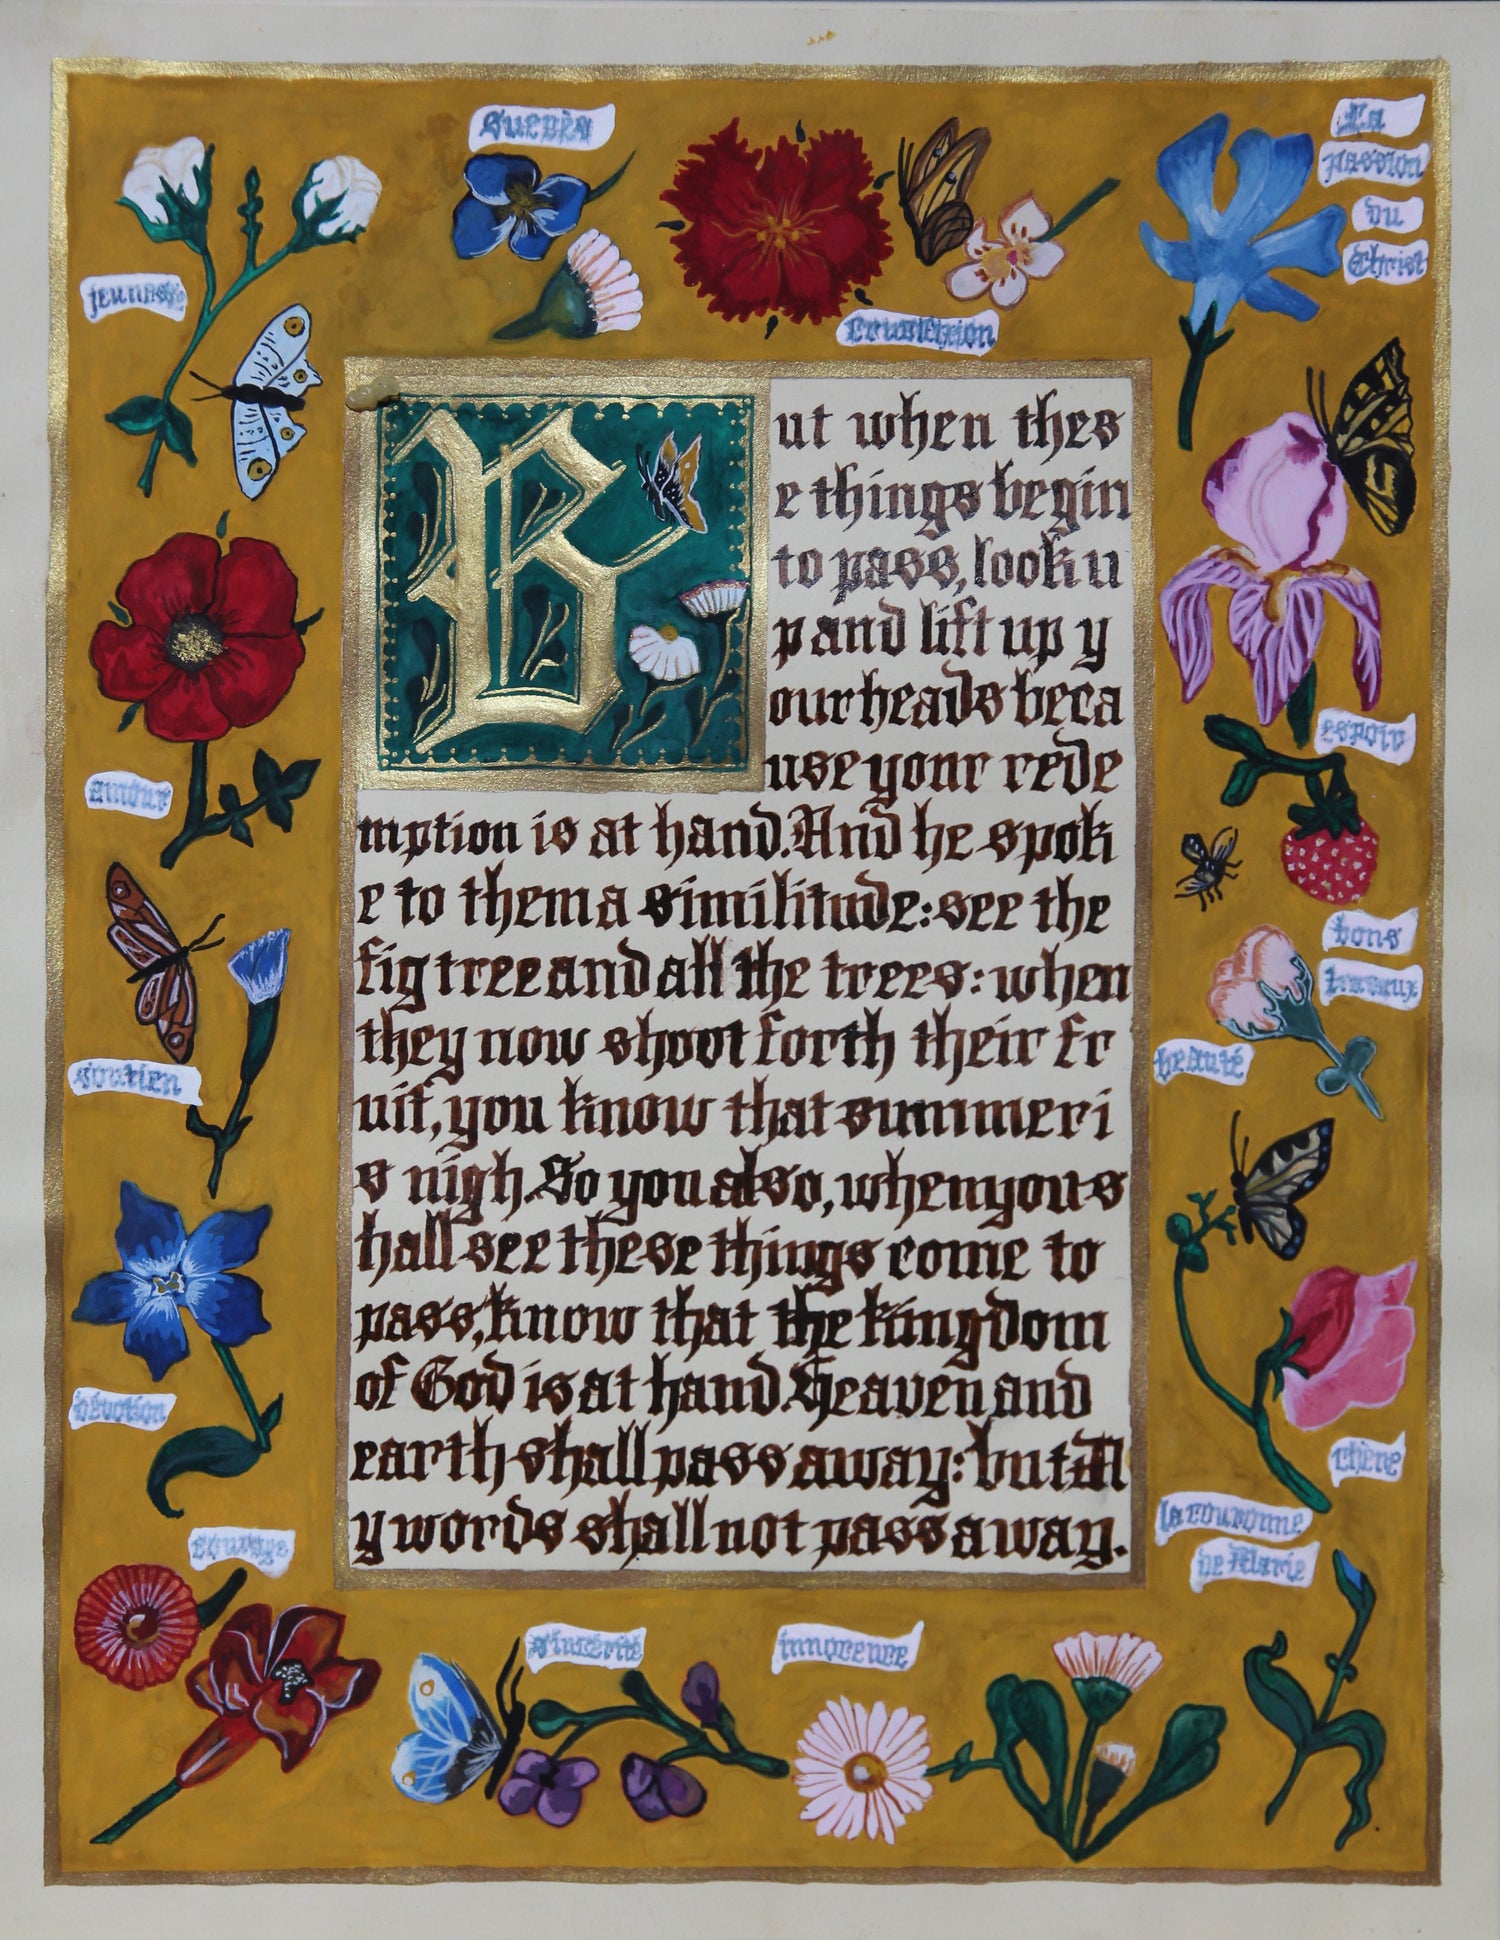 Succès
La
Passion
du
Christ
jeunesse
Crucifixion
But when thes
e things begin
to pass, look u
p and lift up y
our heads beca
use your rede
mption is at hand. And he spok
e to them a similitude: see the
fig tree and all the trees: when
they now shoot forth their fr
uit, you know that summer i
s nigh. So you also, when you s
hall see these things come to
pass, know that the kingdom
of God is at hand Heaven and
earth shall pass away: but M
y words shall not pass away.
espoir
amour
bons
travaux
beauté
soutien
dévotion
chère
la couronne
de Marie
courage
sincérité
innocence